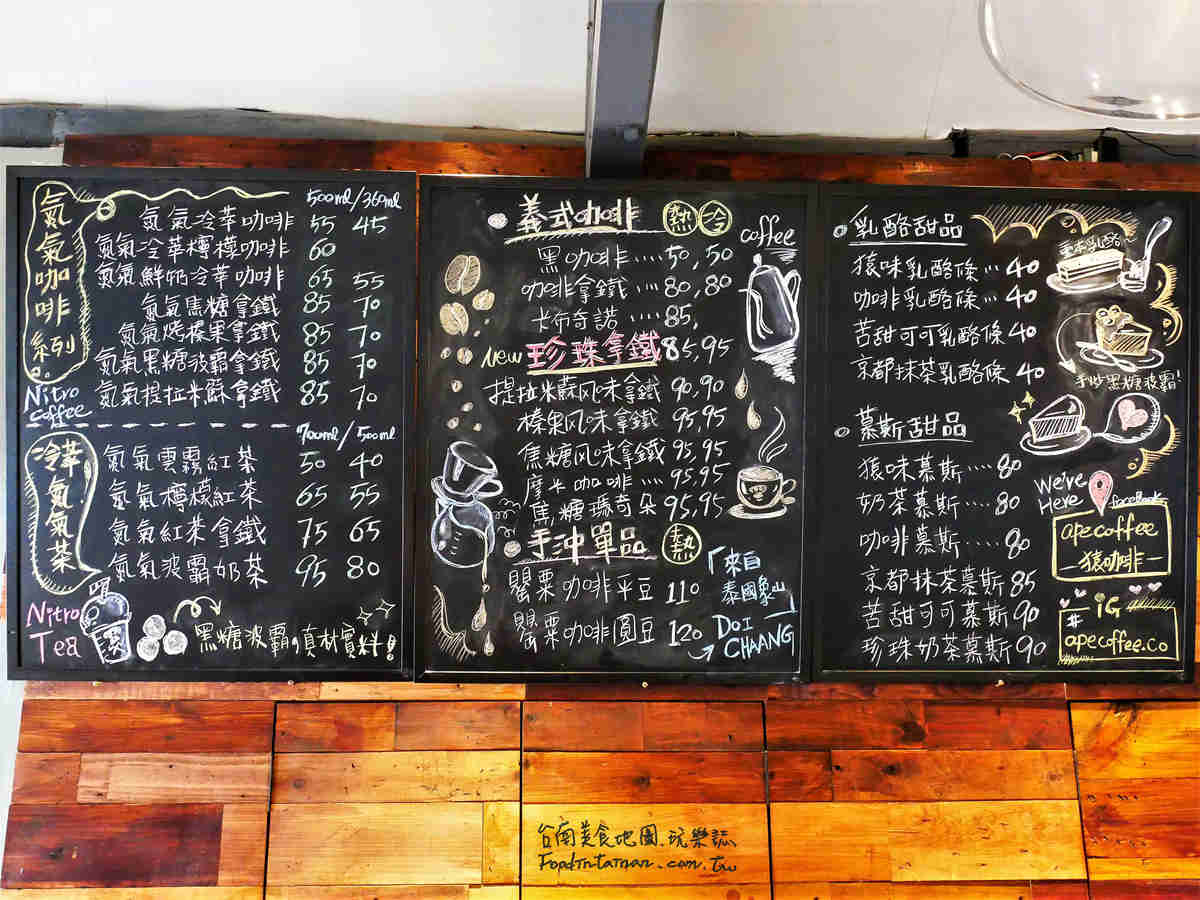 氮氣咖啡系列
Nitro
coffee
500ml/360ml
氮氣冷萃咖啡 55 45
氮氣冷萃檸檬咖啡 60
氮氣鮮奶冷萃咖啡 65 55
氮氣焦糖拿鐵 85 70
氮氣烤榛果拿鐵 85 70
氮氣黑糖波霸拿鐵 85 70
氮氣提拉米蘇拿鐵 85 70
冷萃氮氣茶
Nitro
Tea
700ml/500ml
氮氣雲霧紅茶 50 40
氮氣檸檬紅茶 65 55
氮氣紅茶拿鐵 75 65
氮氣波霸奶茶 95 80
黑糖波霸,真材實料!
義式咖啡 熱 冷
coffee
黑咖啡....50,50
咖啡拿鐵...80,80
卡布奇諾...85,
new 珍珠拿鐵 85,95
提拉米蘇风味拿鐵 90,90
榛果风味拿鐵 95,95
焦糖风味拿鐵 95,95
摩卡咖啡...95,95
焦糖瑪奇朵 95,95
手沖單品 熱
罌粟咖啡平豆 110
罌粟咖啡圓豆 120
「來自
泰國象山」
DOI
CHAANG
乳酪甜品
猿味乳酪條...40
咖啡乳酪條...40
苦甜可可乳酪條 40
京都抹茶乳酪條 40
慕斯甜品
猿味慕斯....80
奶茶慕斯....80
咖啡慕斯....80
京都抹茶慕斯 85
苦甜可可慕斯 90
珍珠奶茶慕斯 90
重本乳酪~
手炒黑糖波霸!
We're
Here
facebook
apecoffee
—猿咖啡—
# iG
apecoffee.co
台南美食地圖.玩樂誌
FoodInTainan.com.tw